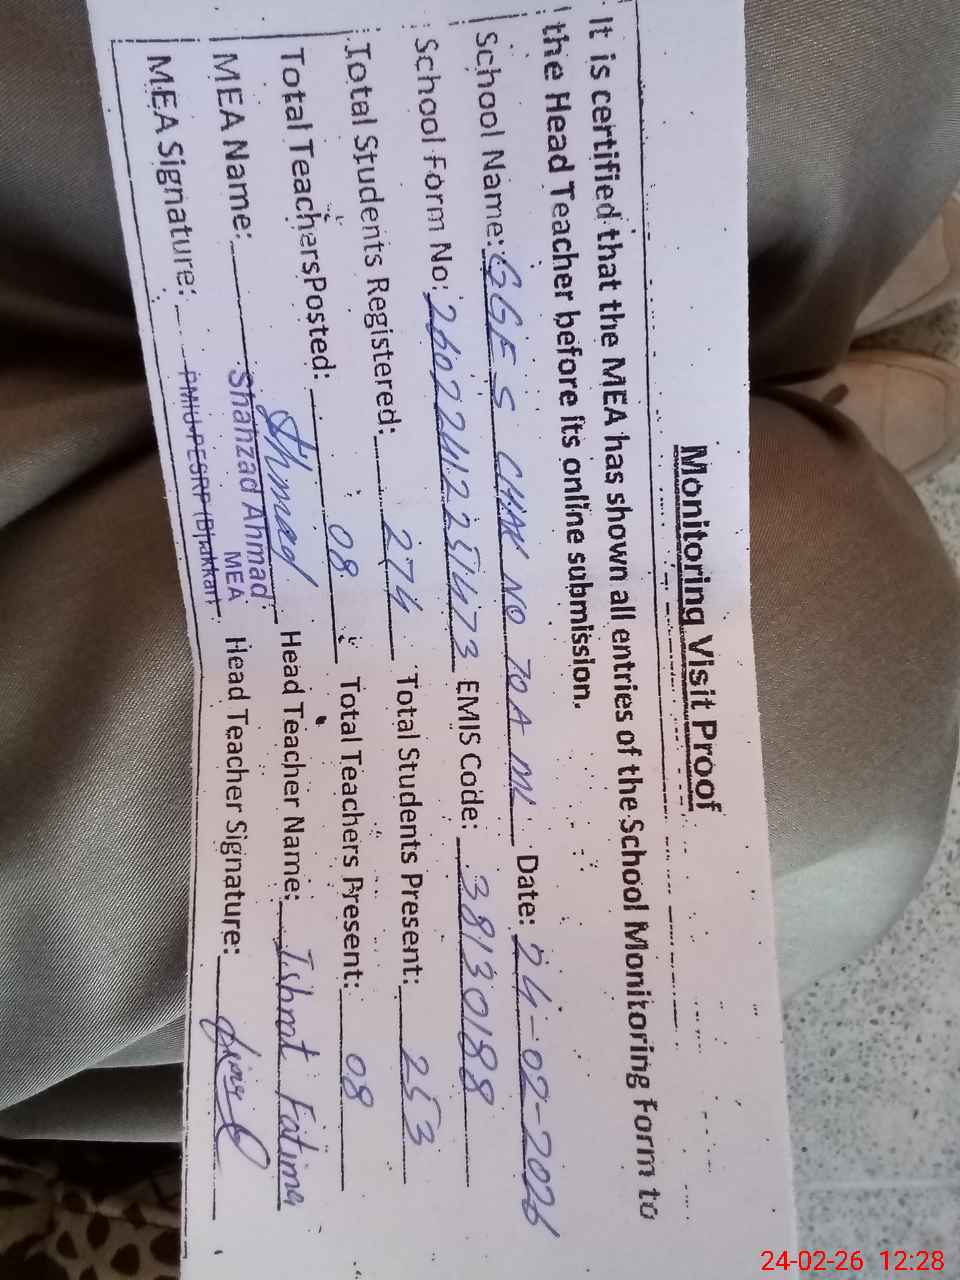 Monitoring Visit Proof
It is certified that the MEA has shown all entries of the School Monitoring Form to
the Head Teacher before its online submission.
School Name: GGES CHAK NO TDA ML Date: 24-02-2026
School Form No: EMIS Code: 38130188
Total Students Registered: 274 Total Students Present: 253
Total Teachers Posted: 08 Total Teachers Present: 08
MEA Name: Shahzad Ahmad Head Teacher Name: Ishrat Fatima
MEA
MEA Signature: PMIU-PESRP (B) Head Teacher Signature:
24-02-26 12:28